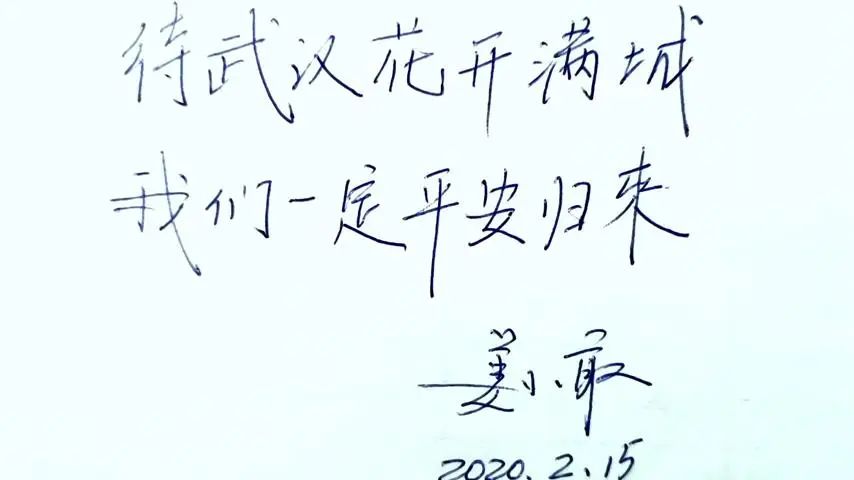 待武汉花开满城
我们一定平安归来
姜小
2020.2.15